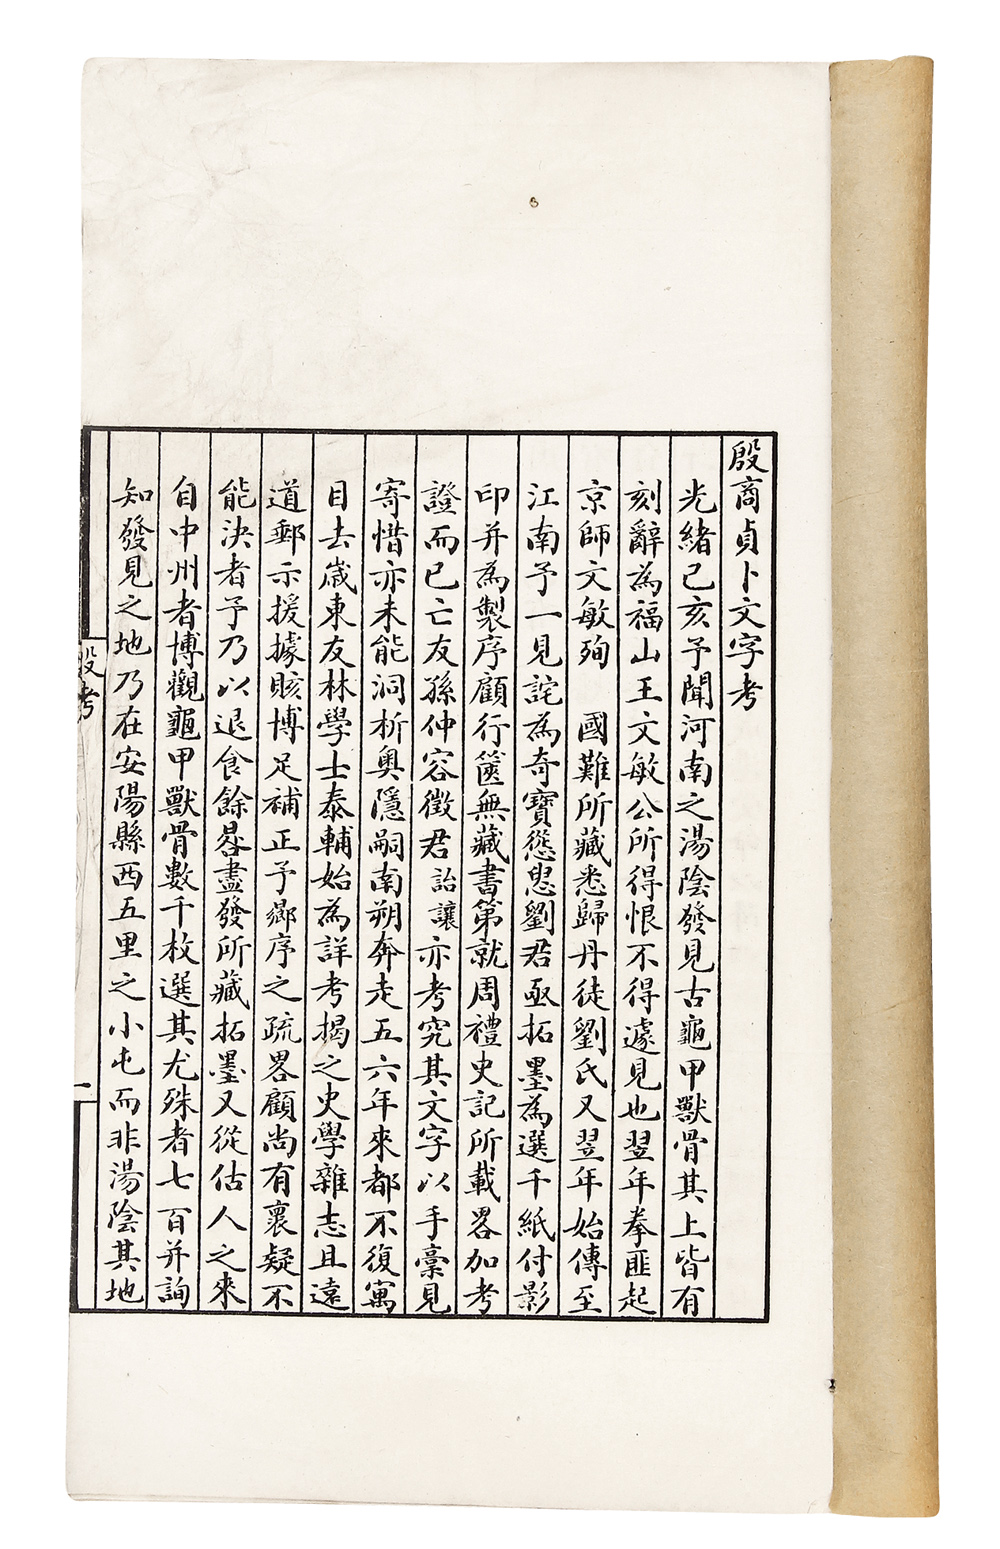 殷商貞卜文字考
光緒己亥予聞河南之湯陰發見古龜甲獸骨其上皆有
刻辭為福山王文敏公所得恨不得遽見也翌年拳匪起
京師文敏殉　國難所藏悉歸丹徒劉氏又翌年始傳至
江南予一見詫為奇寶慫恿劉君亟拓墨為選千紙付影
印并為製序顧行篋無藏書第就周禮史記所載畧加考
證而已亡友孫仲容徵君詒讓亦考究其文字以手稾見
寄惜亦未能洞析奧隱嗣南朔奔走五六年來都不復寓
目去崴東友林學士泰輔始為詳考揭之史學雜志且遠
道郵示援據賅博足補正予鄉序之疏畧顧尚有裹疑不
能決者予乃以退食餘晷盡發所藏拓墨又從估人之來
自中州者博觀龜甲獸骨數千枚選其尤殊者七百并詢
知發見之地乃在安陽縣西五里之小屯而非湯陰其地
殷考
一